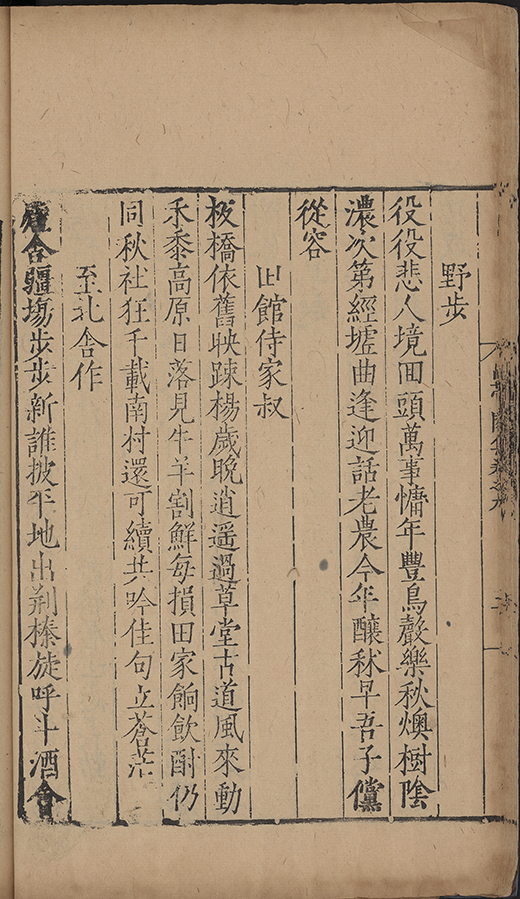 野步
役役悲人境回頭萬事慵年豐鳥聲樂秋燠樹陰
濃次第經墟曲逢迎話老農今年釀秫早吾子儻
從容
旧館侍家叔
板橋依舊映踈楊歲晚逍遥過草堂古道風來動
禾黍高原日落見牛羊割鮮每損田家餉飲酎仍
同秋社狂千載南村還可續共吟佳句立蒼茫
至北舍作
廬舍疆場步步新誰披平地出荊榛旋呼斗酒會